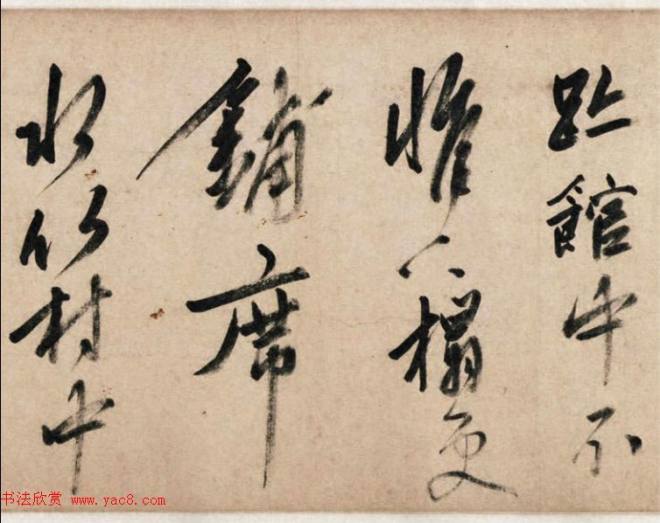 趾館中不
惟下榻更
鋪席
水竹村中
书法欣赏 www.yac8.com